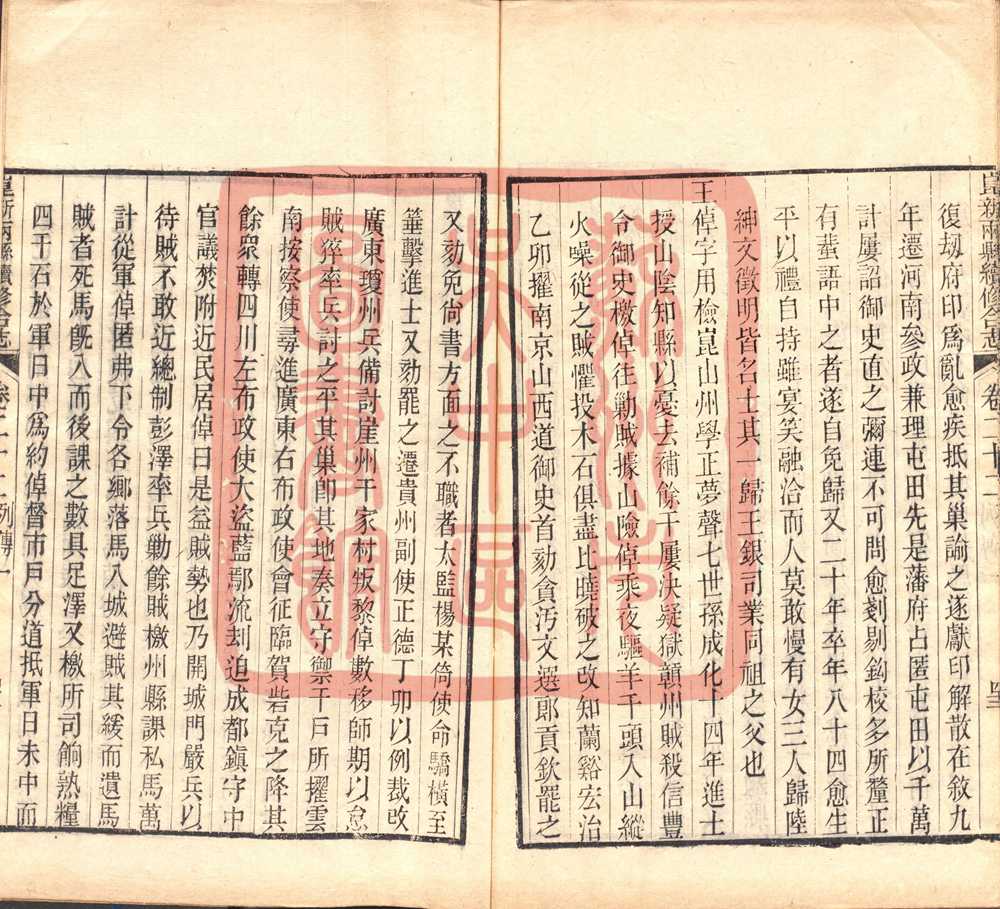 崑新兩縣續修合志
卷二十二
復刼府印爲亂愈疾抵其巢諭之遂獻印解散在敘九
年遷河南參政兼理屯田先是藩府占匿屯田以千萬
計屢詔御史直之彌連不可問愈剗剔鈎校多所釐正
有蜚語中之者遂自免歸又二十年卒年八十四愈生
平以禮自持雖宴笑融洽而人莫敢慢有女三人歸陸
紳文徵明皆名士其一歸王銀司業同祖之父也
王倬字用檢崑山州學正夢聲七世孫成化十四年進士
授山陰知縣以憂去補餘干屢決疑獄贛州賊殺信豐
令御史檄倬往勦賊據山險倬乘夜驅羊千頭入山縱
火噪從之賊懼投木石俱盡比曉破之改知蘭谿宏治
乙卯擢南京山西道御史首劾貪汚文選郎貢欽罷之
又劾免尙書方面之不職者太監楊某倚使命驕橫至
箠擊進士又劾罷之遷貴州副使正德丁卯以例裁改
廣東瓊州兵備討崖州千家村叛黎倬數移師期以怠
賊猝率兵討之平其巢卽其地奏立守禦千戶所擢雲
南按察使尋進廣東右布政使會征臨賀砦克之降其
餘眾轉四川左布政使大盜藍鄢流刦迫成都鎭守中
官議焚附近民居倬曰是益賊勢也乃開城門嚴兵以
待賊不敢近總制彭澤率兵勦餘賊檄州縣課私馬萬
計從軍倬匿弗下令各鄉落馬入城避賊其緩而遺馬
賊者死馬旣入而後課之數具足澤又檄所司餉熟糧
四千石於軍日中爲約倬督市戶分道抵軍日未中而
崑新兩縣續修合志
卷二十二 列傳一